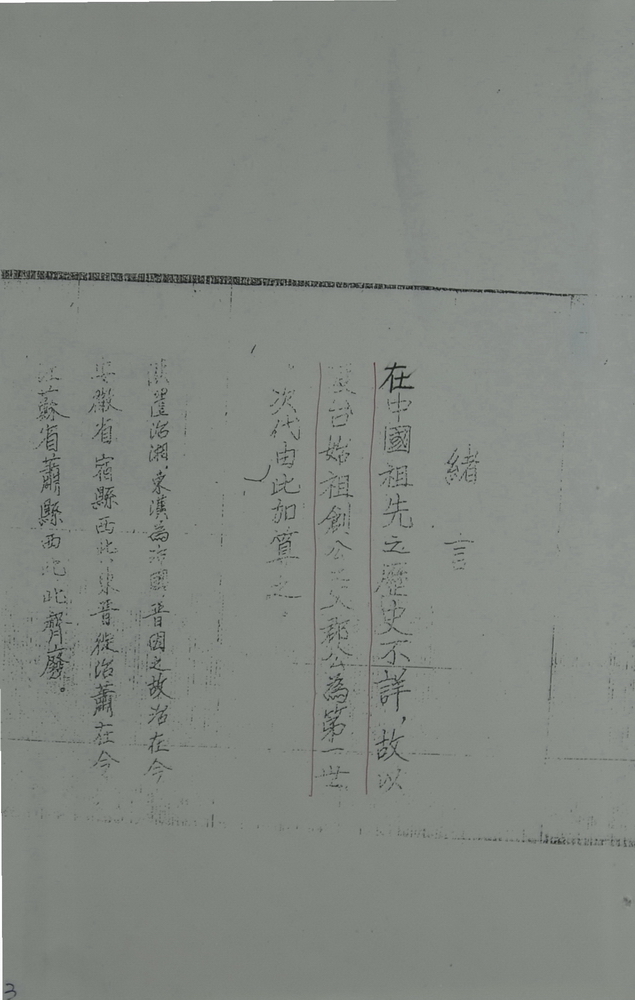 緒言
在中國祖先之歷史不詳，故以
台始祖創公之父郡公為第一世
次代由此加算之。
漢置治湘，東漢為沛國，晉因之故治在今
安徽省宿縣西北，東晉徙治蕭在今
江蘇省蕭縣西北北齊廢。
3